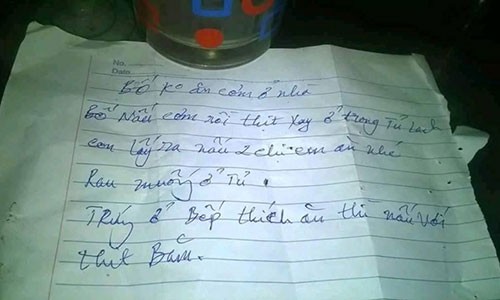 No.
Date
Bố ko ăn cơm ở nhà
Bố Nấu cơm rồi thịt xay ở trong Tủ lạnh
con lấy ra nấu 2 chị em ăn nhé
Rau muống ở Tủ.
Trứng ở Bếp thích ăn thì nấu với
thịt Băm.